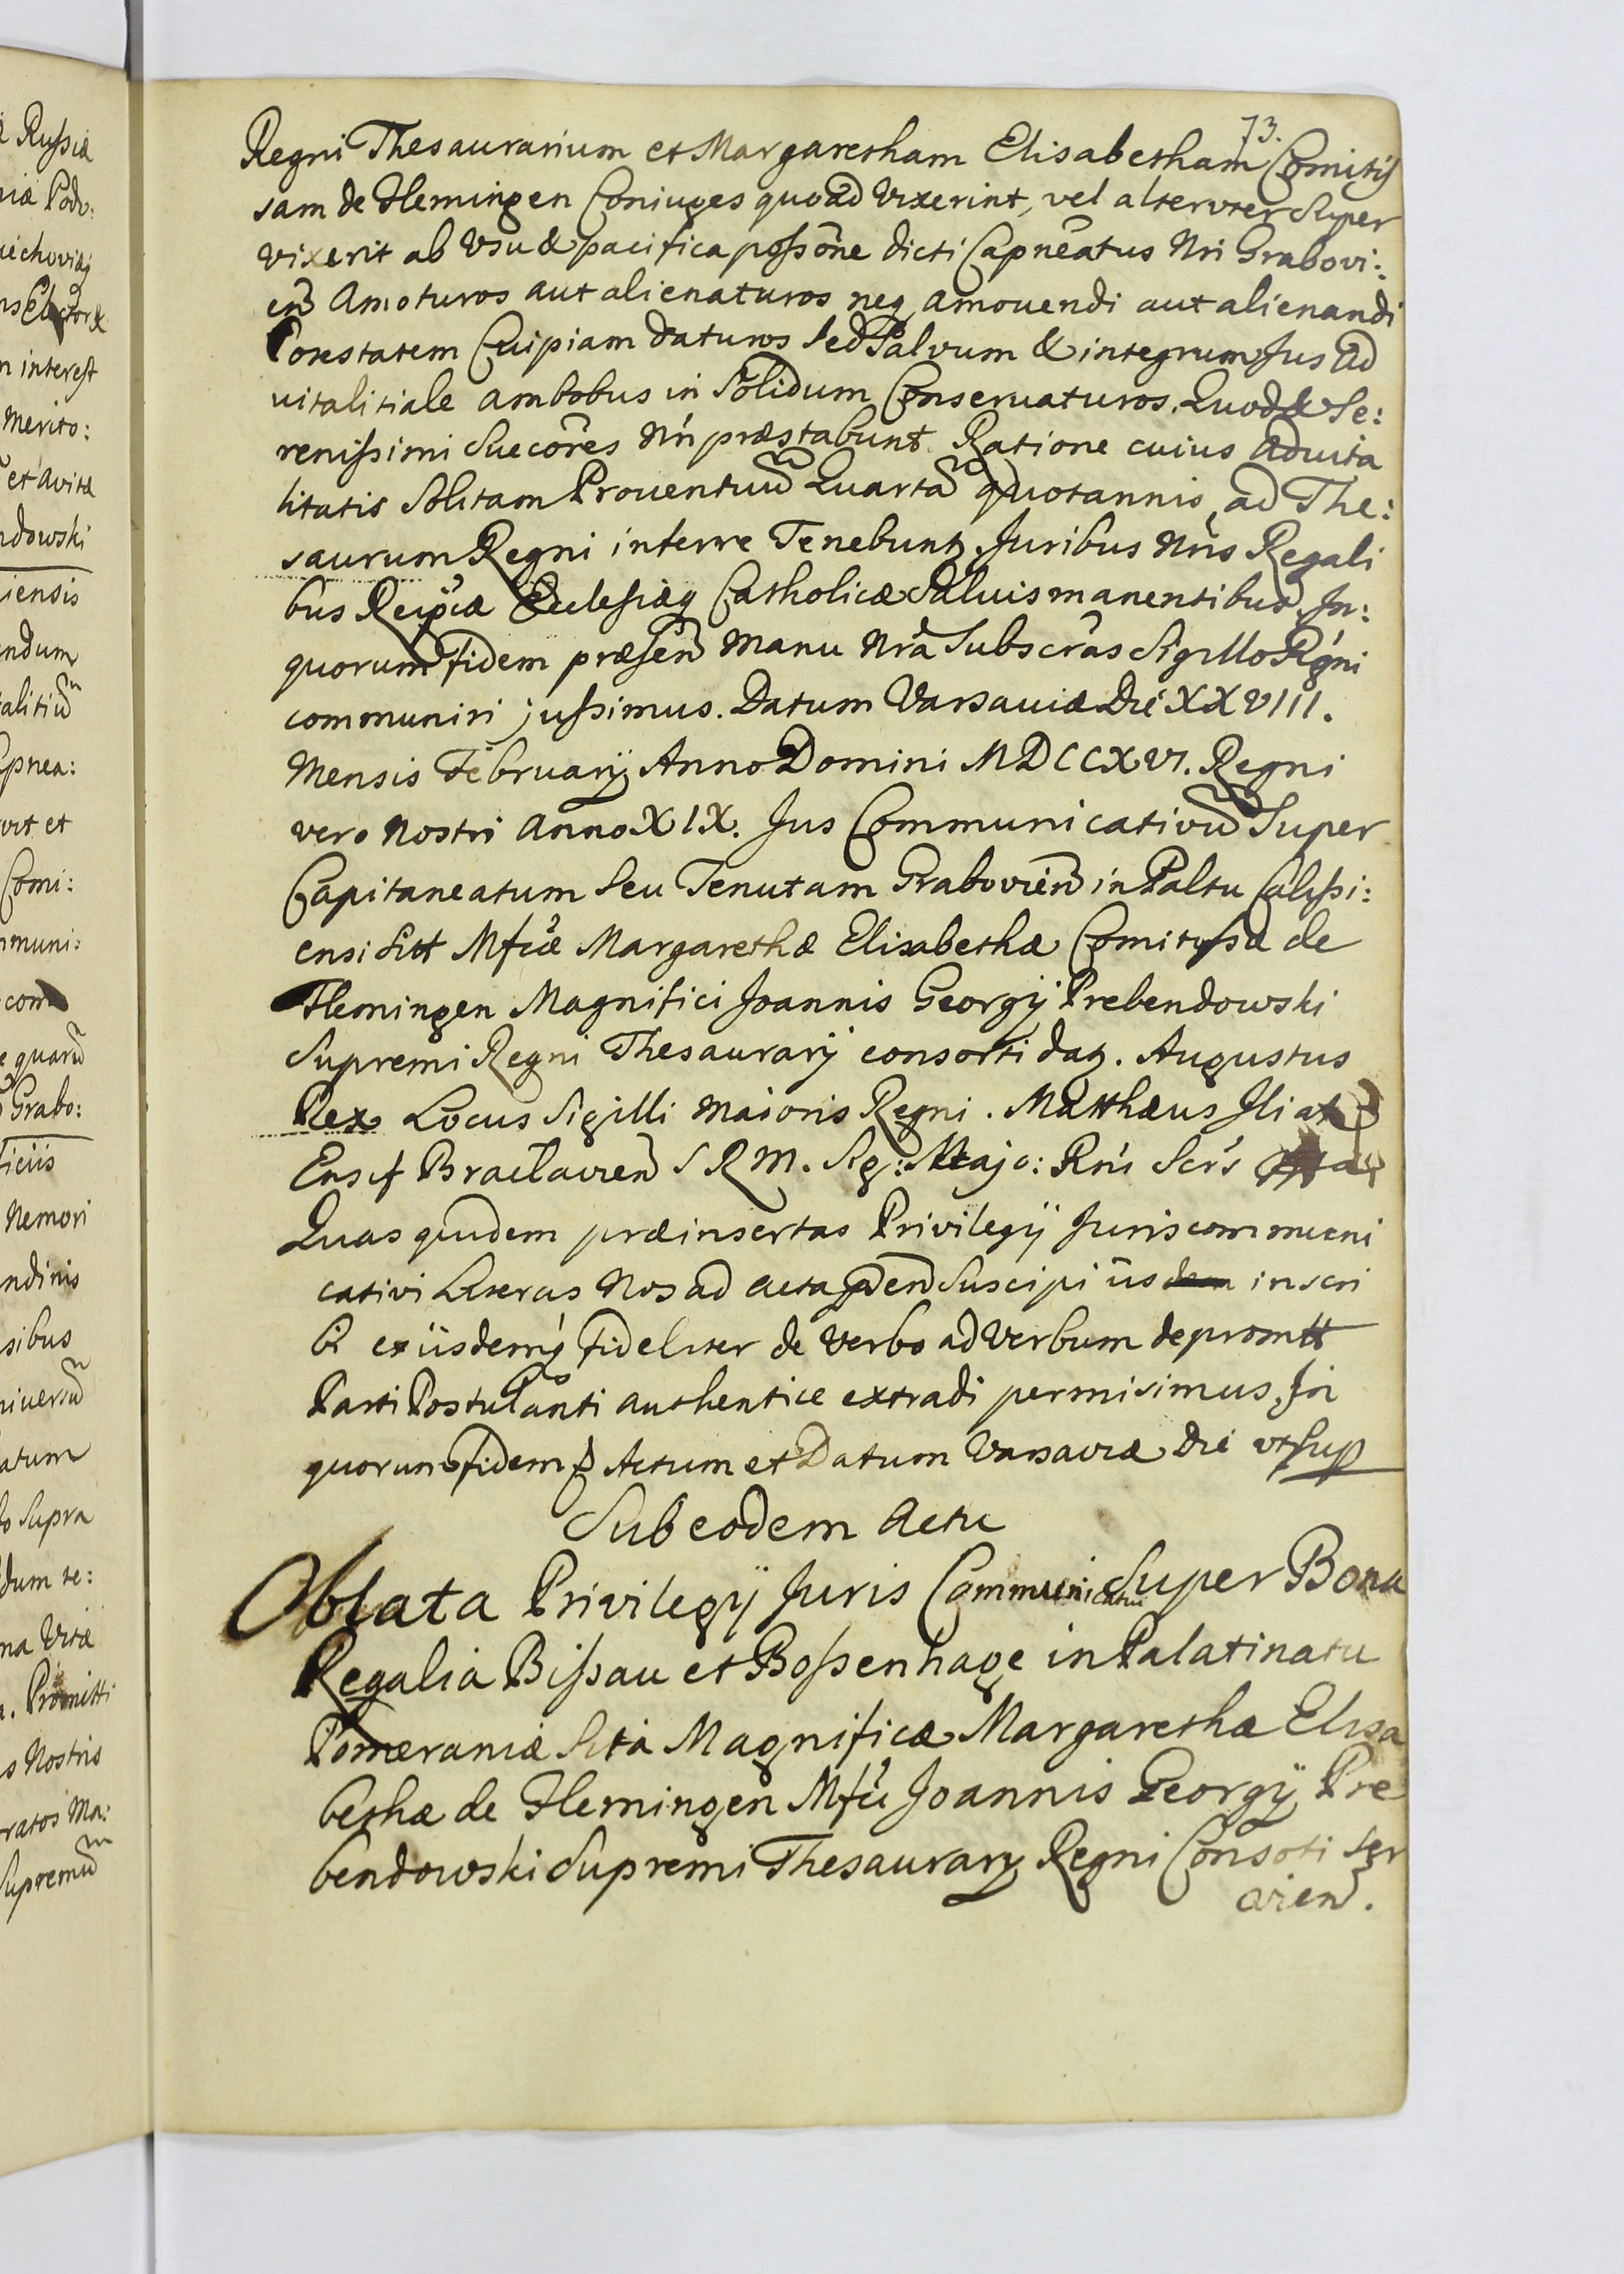 73.
Regni Thesaurarium et Margaretham Elisabetham Comitis
sam de Flemingen Coniuges quoad Vixerint, vel alteruter Super
vixerit ab Vsu & pacifica possõne dicti Capneatus Nri Grabovi:
eñ Amoturos aut alienaturos neq amouendi aut alienandi
Potestatem Cuipiam daturos Sed Salvum & integrum Jus Ad
uitalitiale ambobus in Solidum Conseruaturos. Quod & Se:
renissimi Succõres Nri præstabunt. Ratione cuius Aduita
litatis Solitam Prouentuũ Quartã quotannis, ad The:
saurum Regni inferre Tenebunt, Juribus Nris Regali
bus Reipcæ Ecclesiæq Catholicæ Saluis manentibus. In:
quorum fidem præseñ Manu Nrã Subscrãs Sigillo Rgni
communiri jussimus. Datum Varsauiæ Die XXVIII.
Mensis February Anno Domini MDCCXVI. Regni
vero Nostri Anno XIX. Jus Communicativũ Super
Capitaneatum Seu Tenutam Grabovieñ in Paltu Calissi:
ensi Sitt Mfcæ Margarethæ Elisabethæ Comitissæ de
Flemingen Magnifici Joannis Georgij Prebendowski
Supremi Regni Thesaurarij consorti datz. Augustus
Rex Locus Sigilli Maioris Regni. Matthæus Iliat
Ensif Braclavieñ S R M. Sig: Majo: Rni Scrs
Quas quidem præinsertas Privilegij Juris communi
cativi Literas Nos ad Acta p̃deñ Suscipi iis inscri
bi ex iisdemq fideliter de Verbo ad Verbum depromtt
Parti Postulanti authentice extradi permisimus, In
quorum fidem Actum et Datum Varsaviæ Die vt Sup
Sub eodem Actu
Oblata Privilegij Juris Communicatiu Super Bona
Regalia Bissau et Bossenhage in Palatinatu
Pomeraniæ Sita Magnificæ Margarethæ Elisa
bethæ de Flemingen Mfci Joannis Georgij Pre
bendowski Supremi Thesaurary Regni Consoti Ser
vieñ.